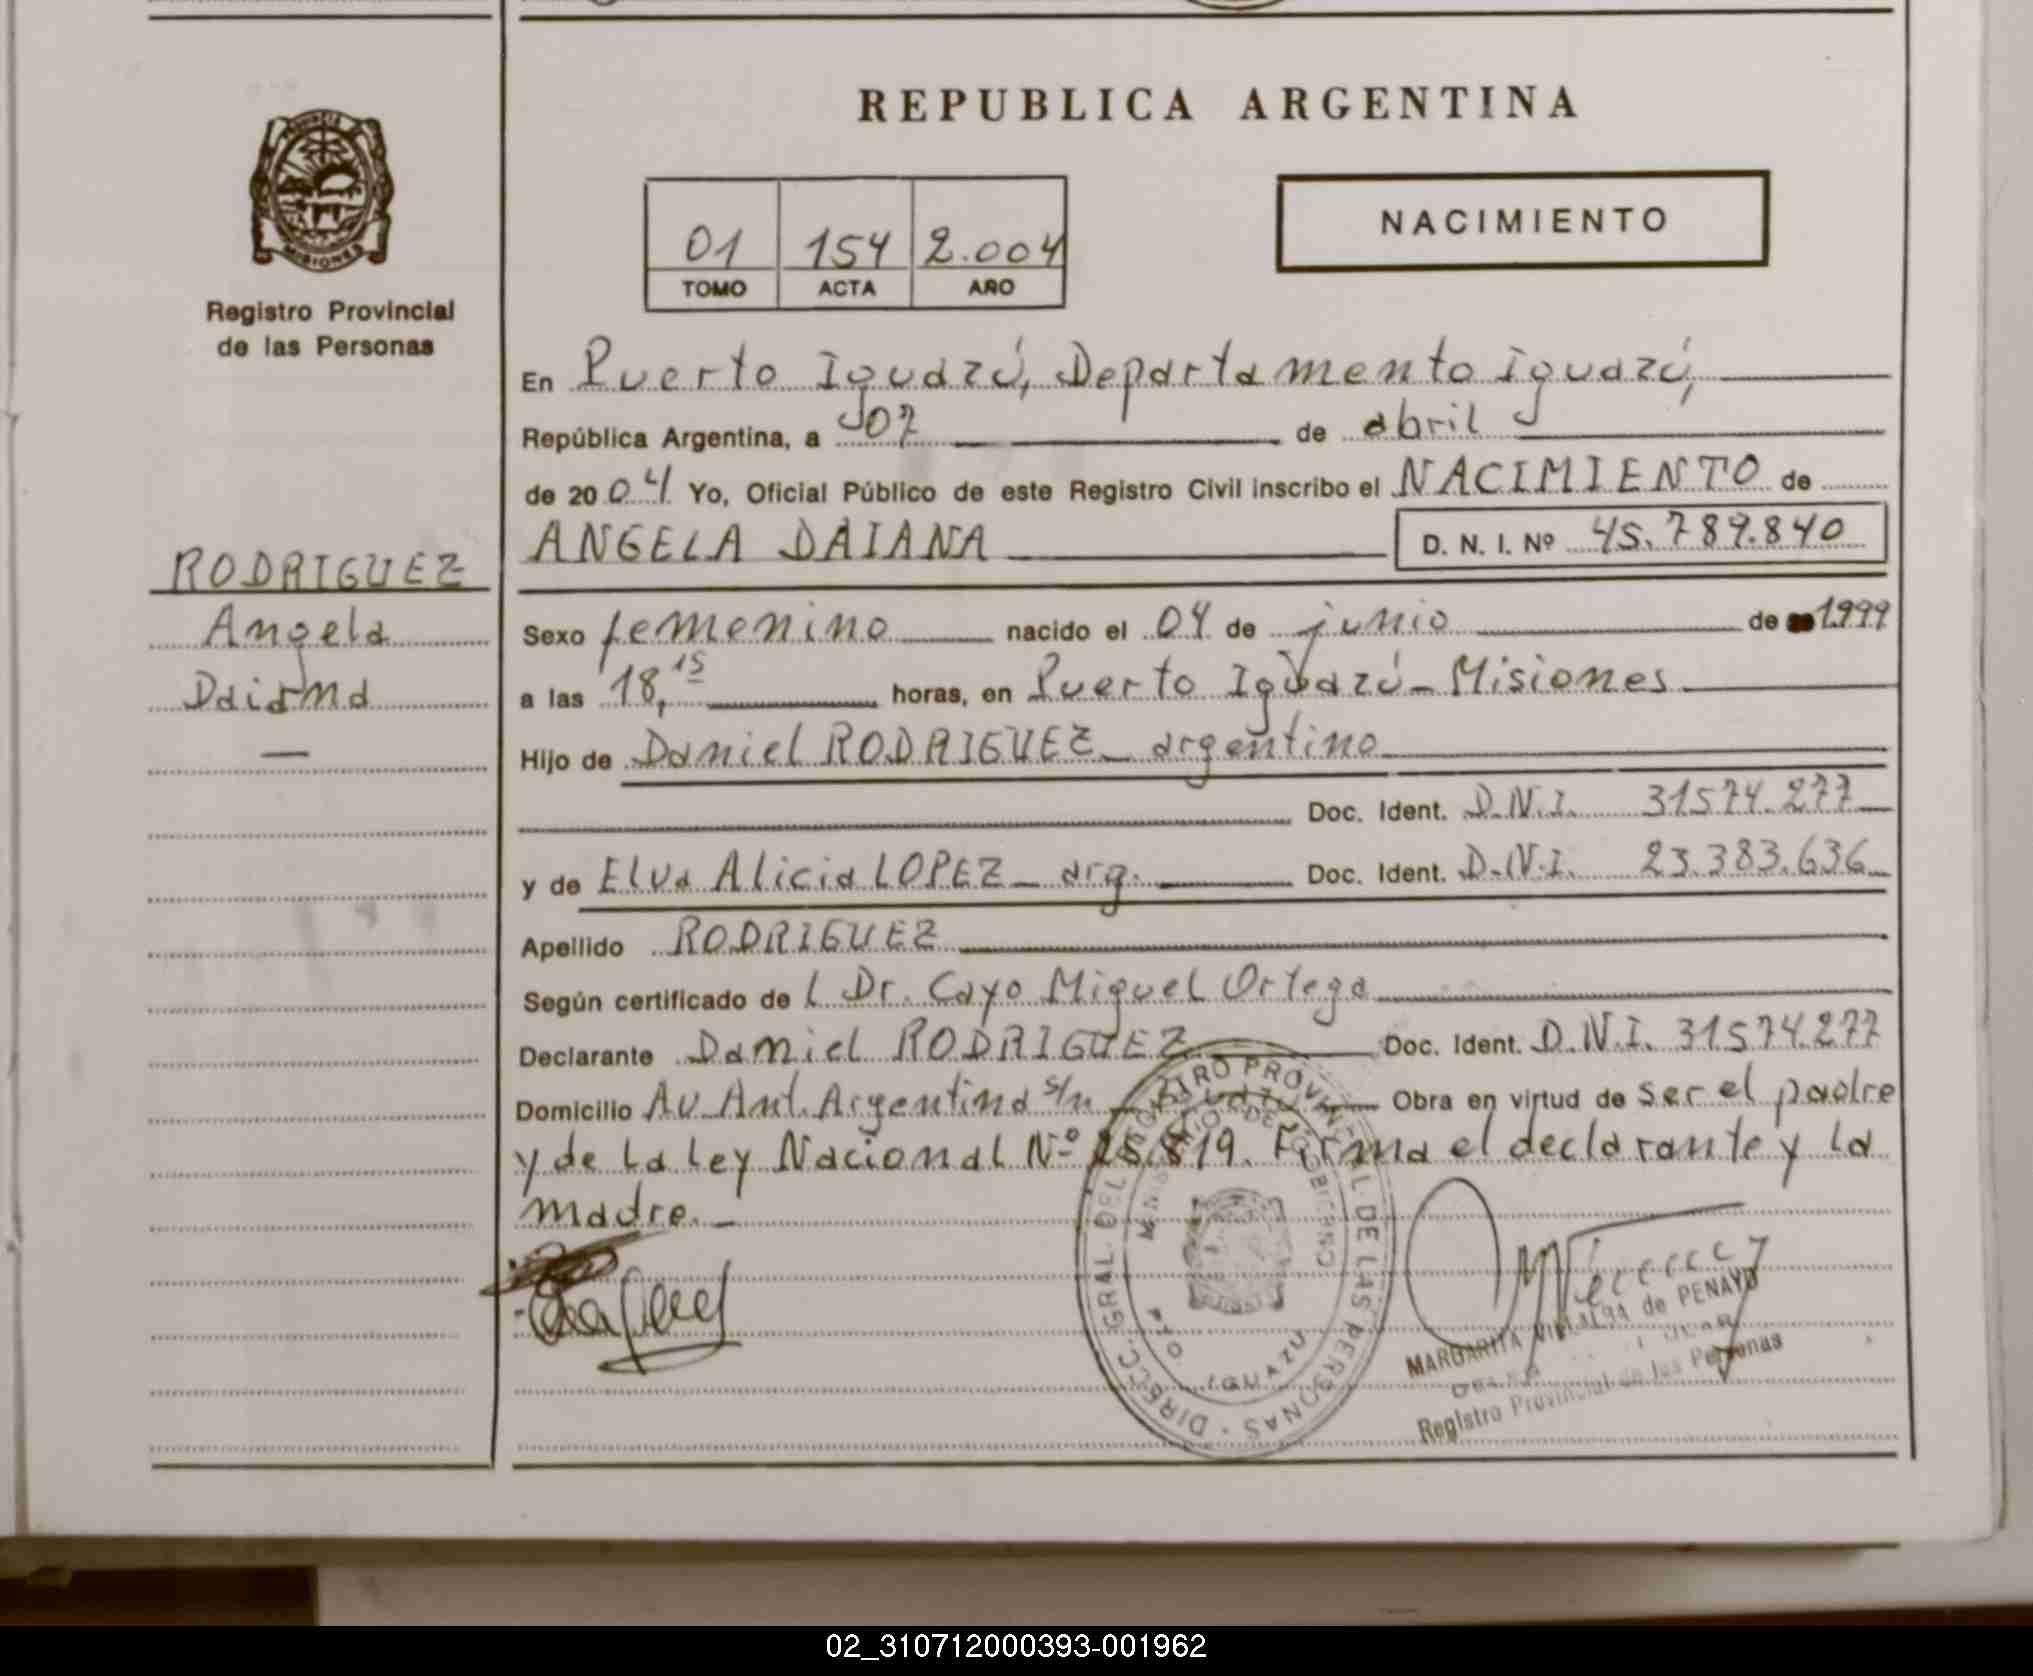 REPUBLICA ARGENTINA
NACIMIENTO
01 154 2.004
TOMO ACTA AÑO
MISIONES
Registro Provincial
de las Personas
En Puerto Iguazú, Departamento Iguazú,
República Argentina, a 07 de abril
de 2004 Yo, Oficial Público de este Registro Civil inscribo el NACIMIENTO de
ANGELA DAIANA D. N. I. Nº 45.789.840
RODRIGUEZ
Angela
Daiana
Sexo femenino nacido el 04 de junio de 1999
a las 18,15 horas, en Puerto Iguazú - Misiones
Hijo de Daniel RODRIGUEZ - argentino
Doc. Ident. D.N.I. 31574.277
y de Elva Alicia LOPEZ - arg. Doc. Ident. D.N.I. 23.383.636
Apellido RODRIGUEZ
Según certificado de l Dr. Cayo Miguel Ortega
Declarante Daniel RODRIGUEZ Doc. Ident. D.N.I. 31574.277
Domicilio Av. Ant. Argentina s/n - Obra en virtud de ser el padre
y de la Ley Nacional Nº 25.819. Firma el declarante y la
madre. -
DIRECC. GRAL. DEL REGISTRO PROVINCIAL DE LAS PERSONAS
MINISTERIO DE GOBIERNO
PTO. IGUAZU
MARGARITA VILLALBA de PENAYO
Registro Provincial de las Personas
02_310712000393-001962